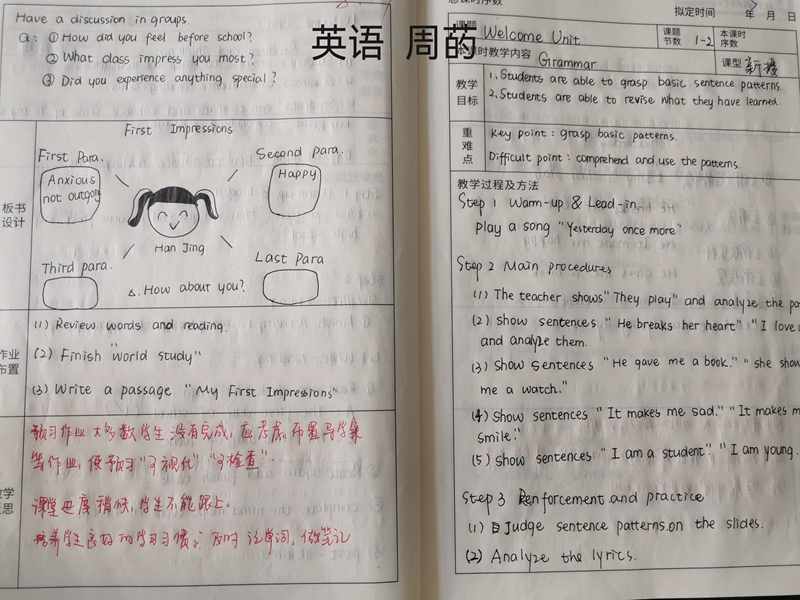 英语 周的
Have a discussion in groups
Q: ① How did you feel before school?
② What class impress you most?
③ Did you experience anything special?
板书
设计
First Impressions
First Para.
Anxious
not outgoing
Second para.
Happy
Han Jing
Third para.
Last Para
△. How about you?
作业
布置
(1) Review words and reading.
(2) Finish "world study"
(3) Write a passage "My First Impressions"
教学
反思
预习作业大多数学生没有完成,应考虑布置导学案
等作业,使预习"可视化""可检查".
课堂进度稍快,学生不能跟上.
培养学生良好的学习习惯:及时记单词,做笔记
总课时序数
拟定时间 年 月 日
课题 Welcome Unit
课题
节数 1-2
本课时
序数
本课时教学内容 Grammar
课型 新授
教学
目标
1. Students are able to grasp basic sentence patterns.
2. Students are able to revise what they have learned.
重
难
点
Key point: grasp basic patterns.
Difficult point: comprehend and use the patterns.
教学过程及方法
Step 1 Warm-up & Lead-in
play a song "Yesterday once more"
Step 2 Main procedures
(1) The teacher shows "They play" and analyze the pa
(2) show sentences "He breaks her heart" "I love
and analyze them.
(3) show sentences "He gave me a book." "she show
me a watch."
(4) show sentences "It makes me sad." "It makes m
smile."
(5) show sentences "I am a student" "I am young.
Step 3 Renforcement and practice
(1) Judge sentence patterns on the slides.
(2) Analyze the lyrics.